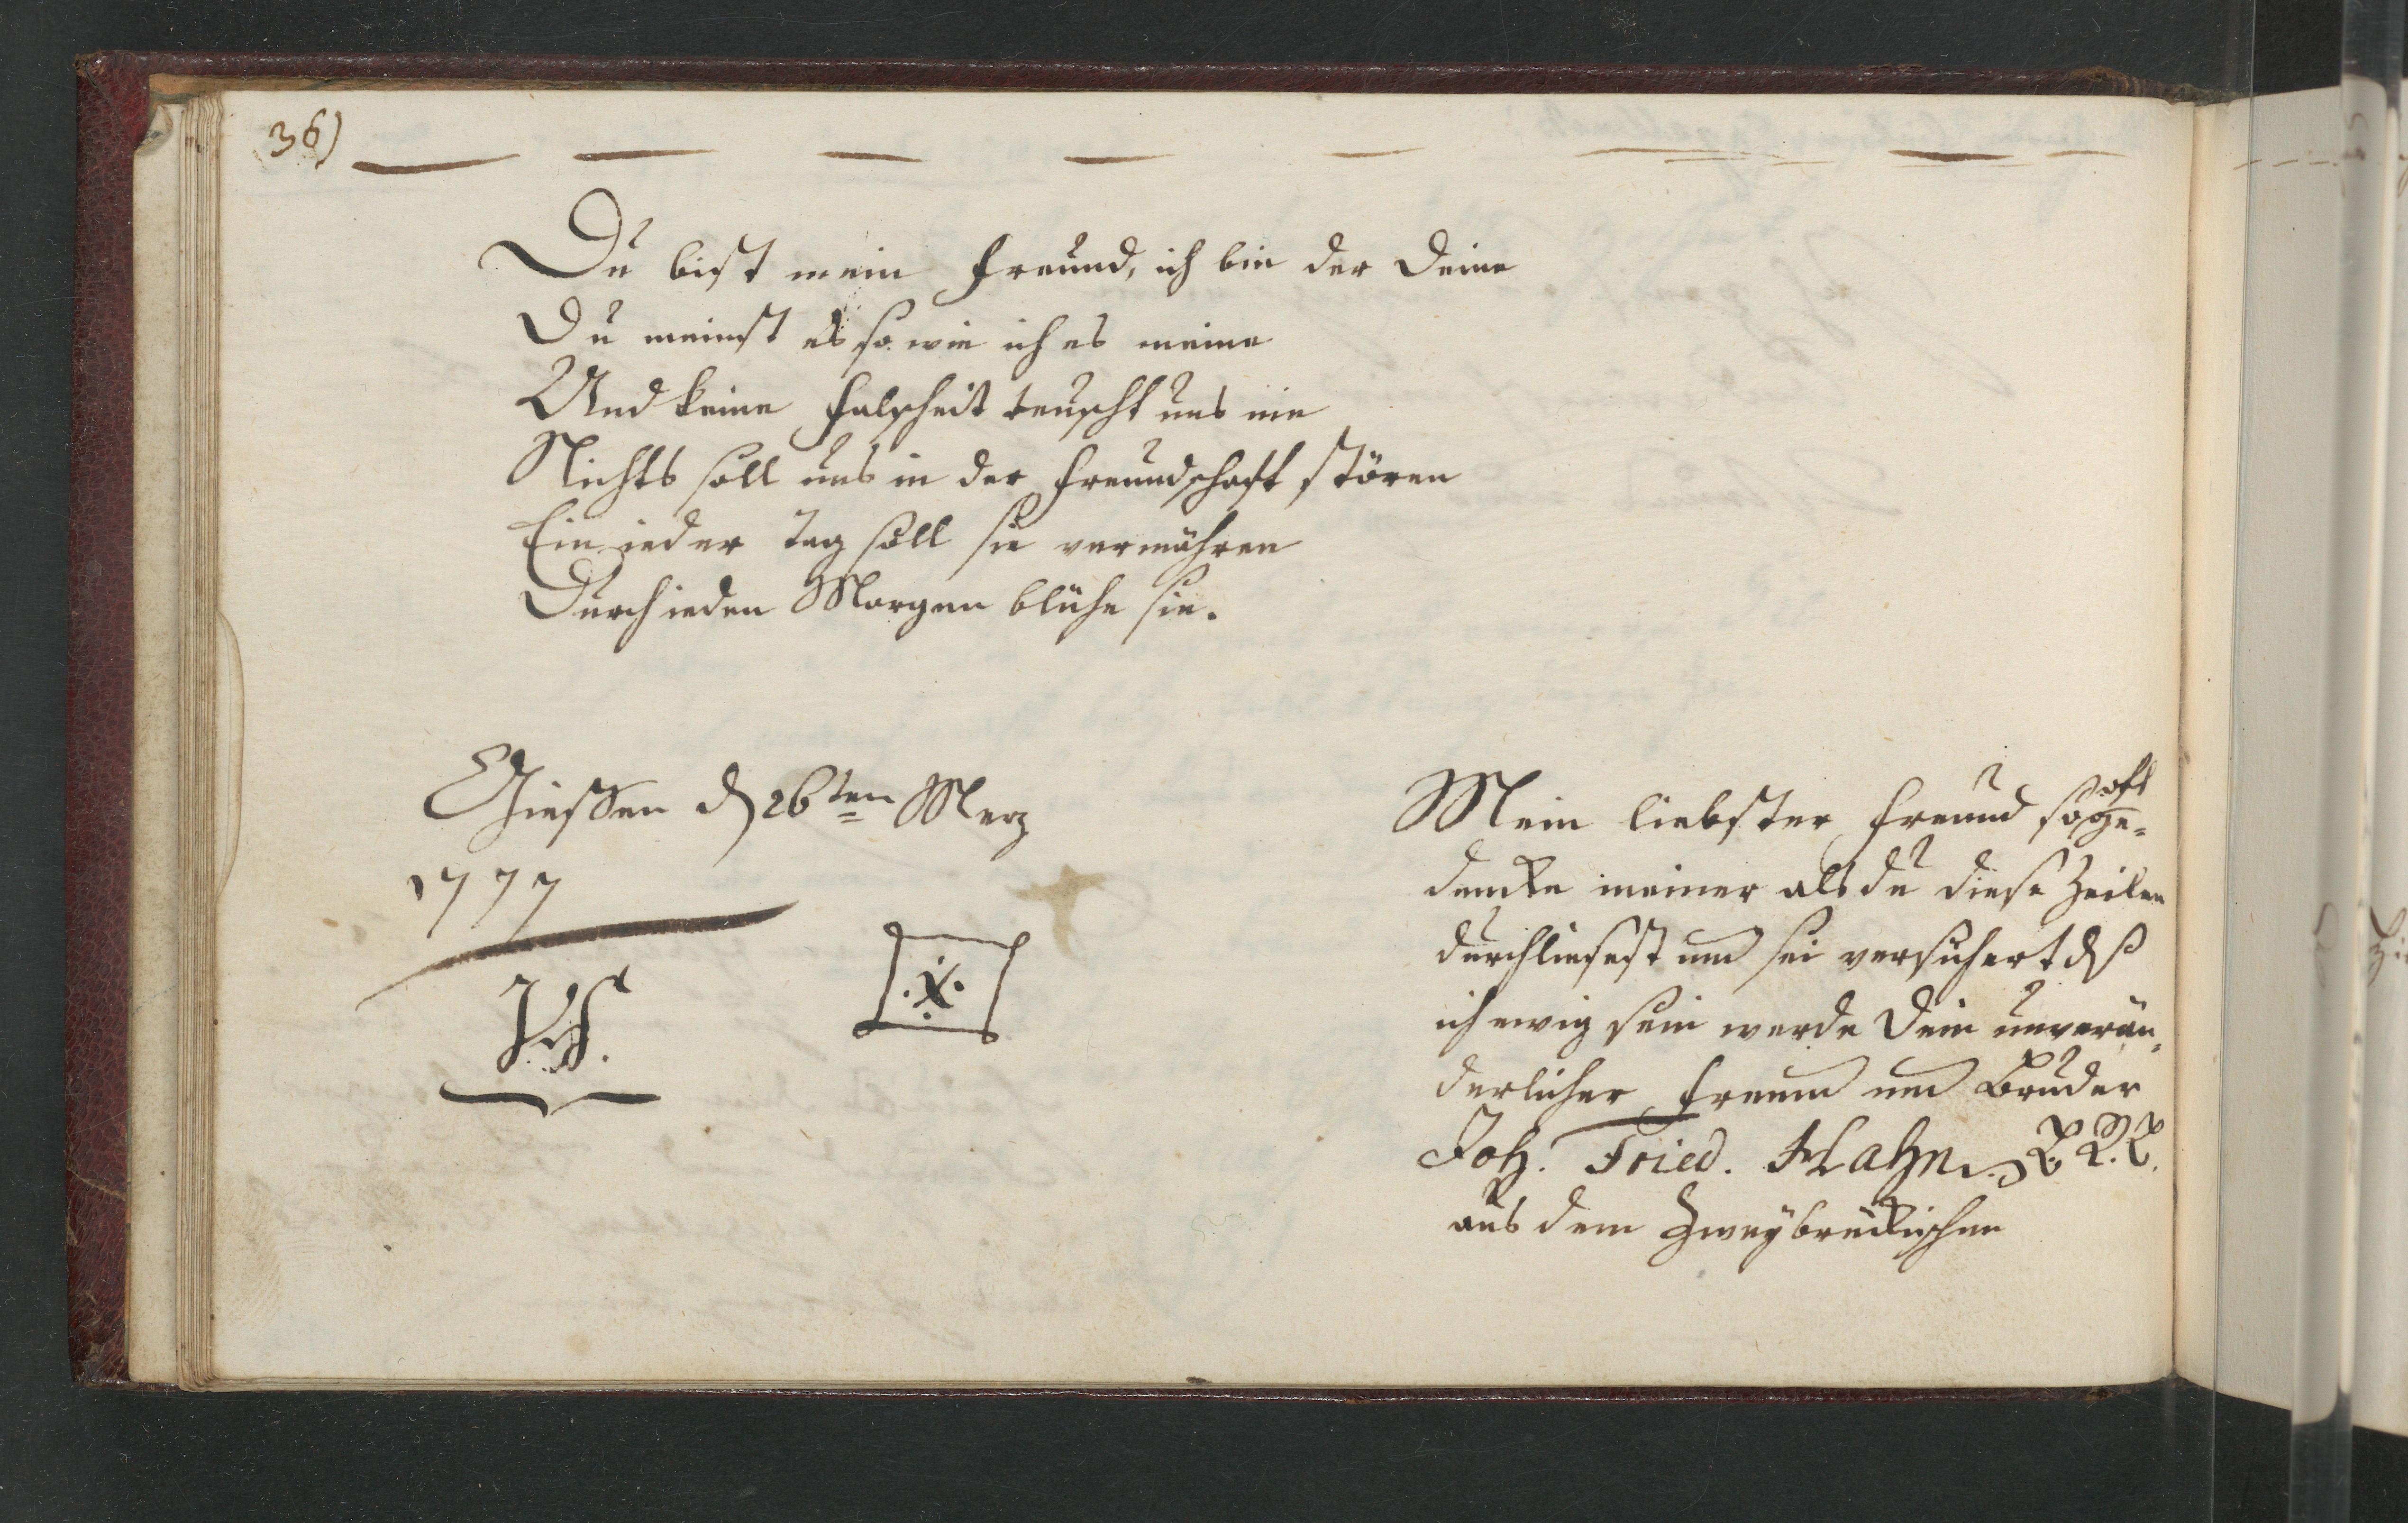 36)
Du bist mein Freund, ich bin der Deine
Du meinst es so wie ich es meine
Und keine Falscheit teuscht uns nie
Nichts soll uns in der Freundschaft stören
Ein ieder Tag soll sie vermähren
Durch ieden Morgen blühe sie.
Giessen d 26ten Merz
1777
.x.
Mein liebster Freund so oft ge-
dencke meiner als du diese Zeilen
durchliesest und sei versichert dß
ich ewig sein werde Dein unverän-
derlicher Freund und Bruder
Joh. Fried. Hahn.
aus dem Zweybrückischen